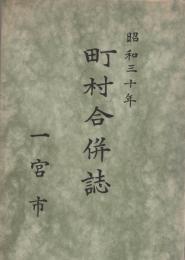 昭和三十年
町村合併誌
一宮市